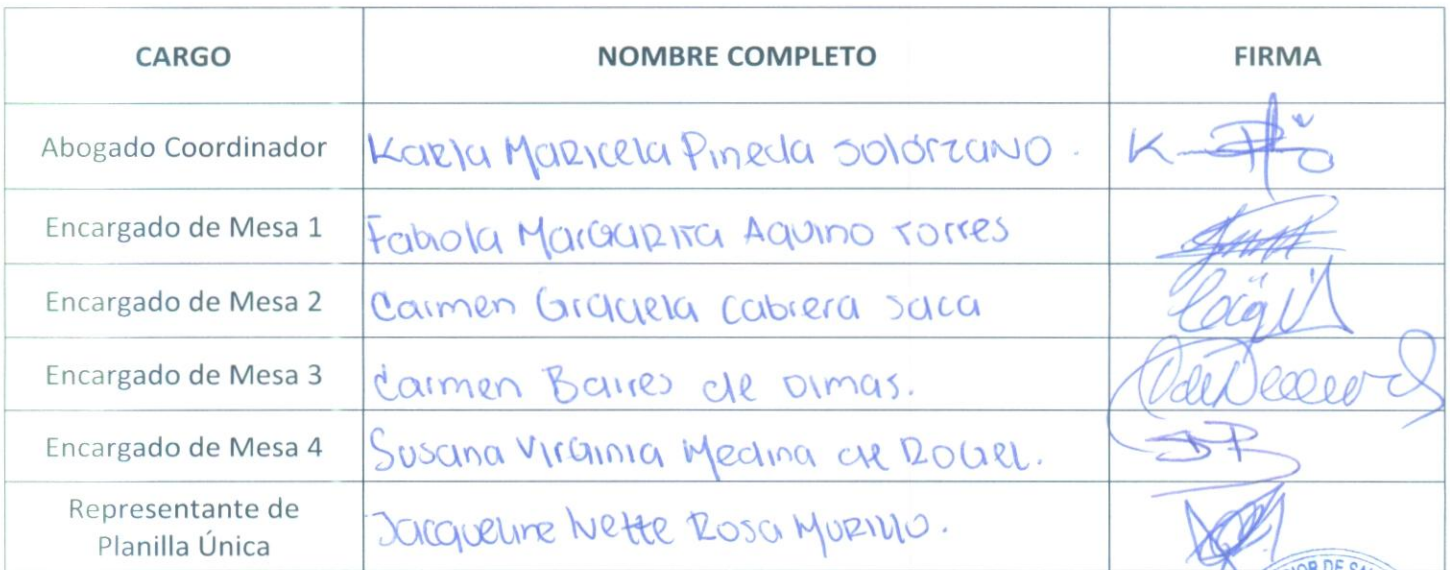 CARGO NOMBRE COMPLETO FIRMA
Abogado Coordinador Karla Maricela Pineda Solórzano.
Encargado de Mesa 1 Fabiola Margarita Aquino Torres
Encargado de Mesa 2 Carmen Graciela Cabrera Saca
Encargado de Mesa 3 Carmen Baires de Dimas.
Encargado de Mesa 4 Susana Virginia Medina de Rogel.
Representante de
Planilla Única Jacqueline Ivette Rosa Murillo.